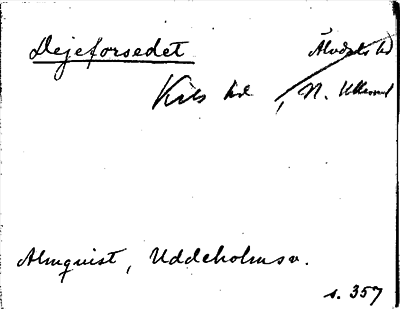 Dejeforsedet Älvdals hd
Kils hd, N. Ullerud
Almquist, Uddeholmsv.
s. 357